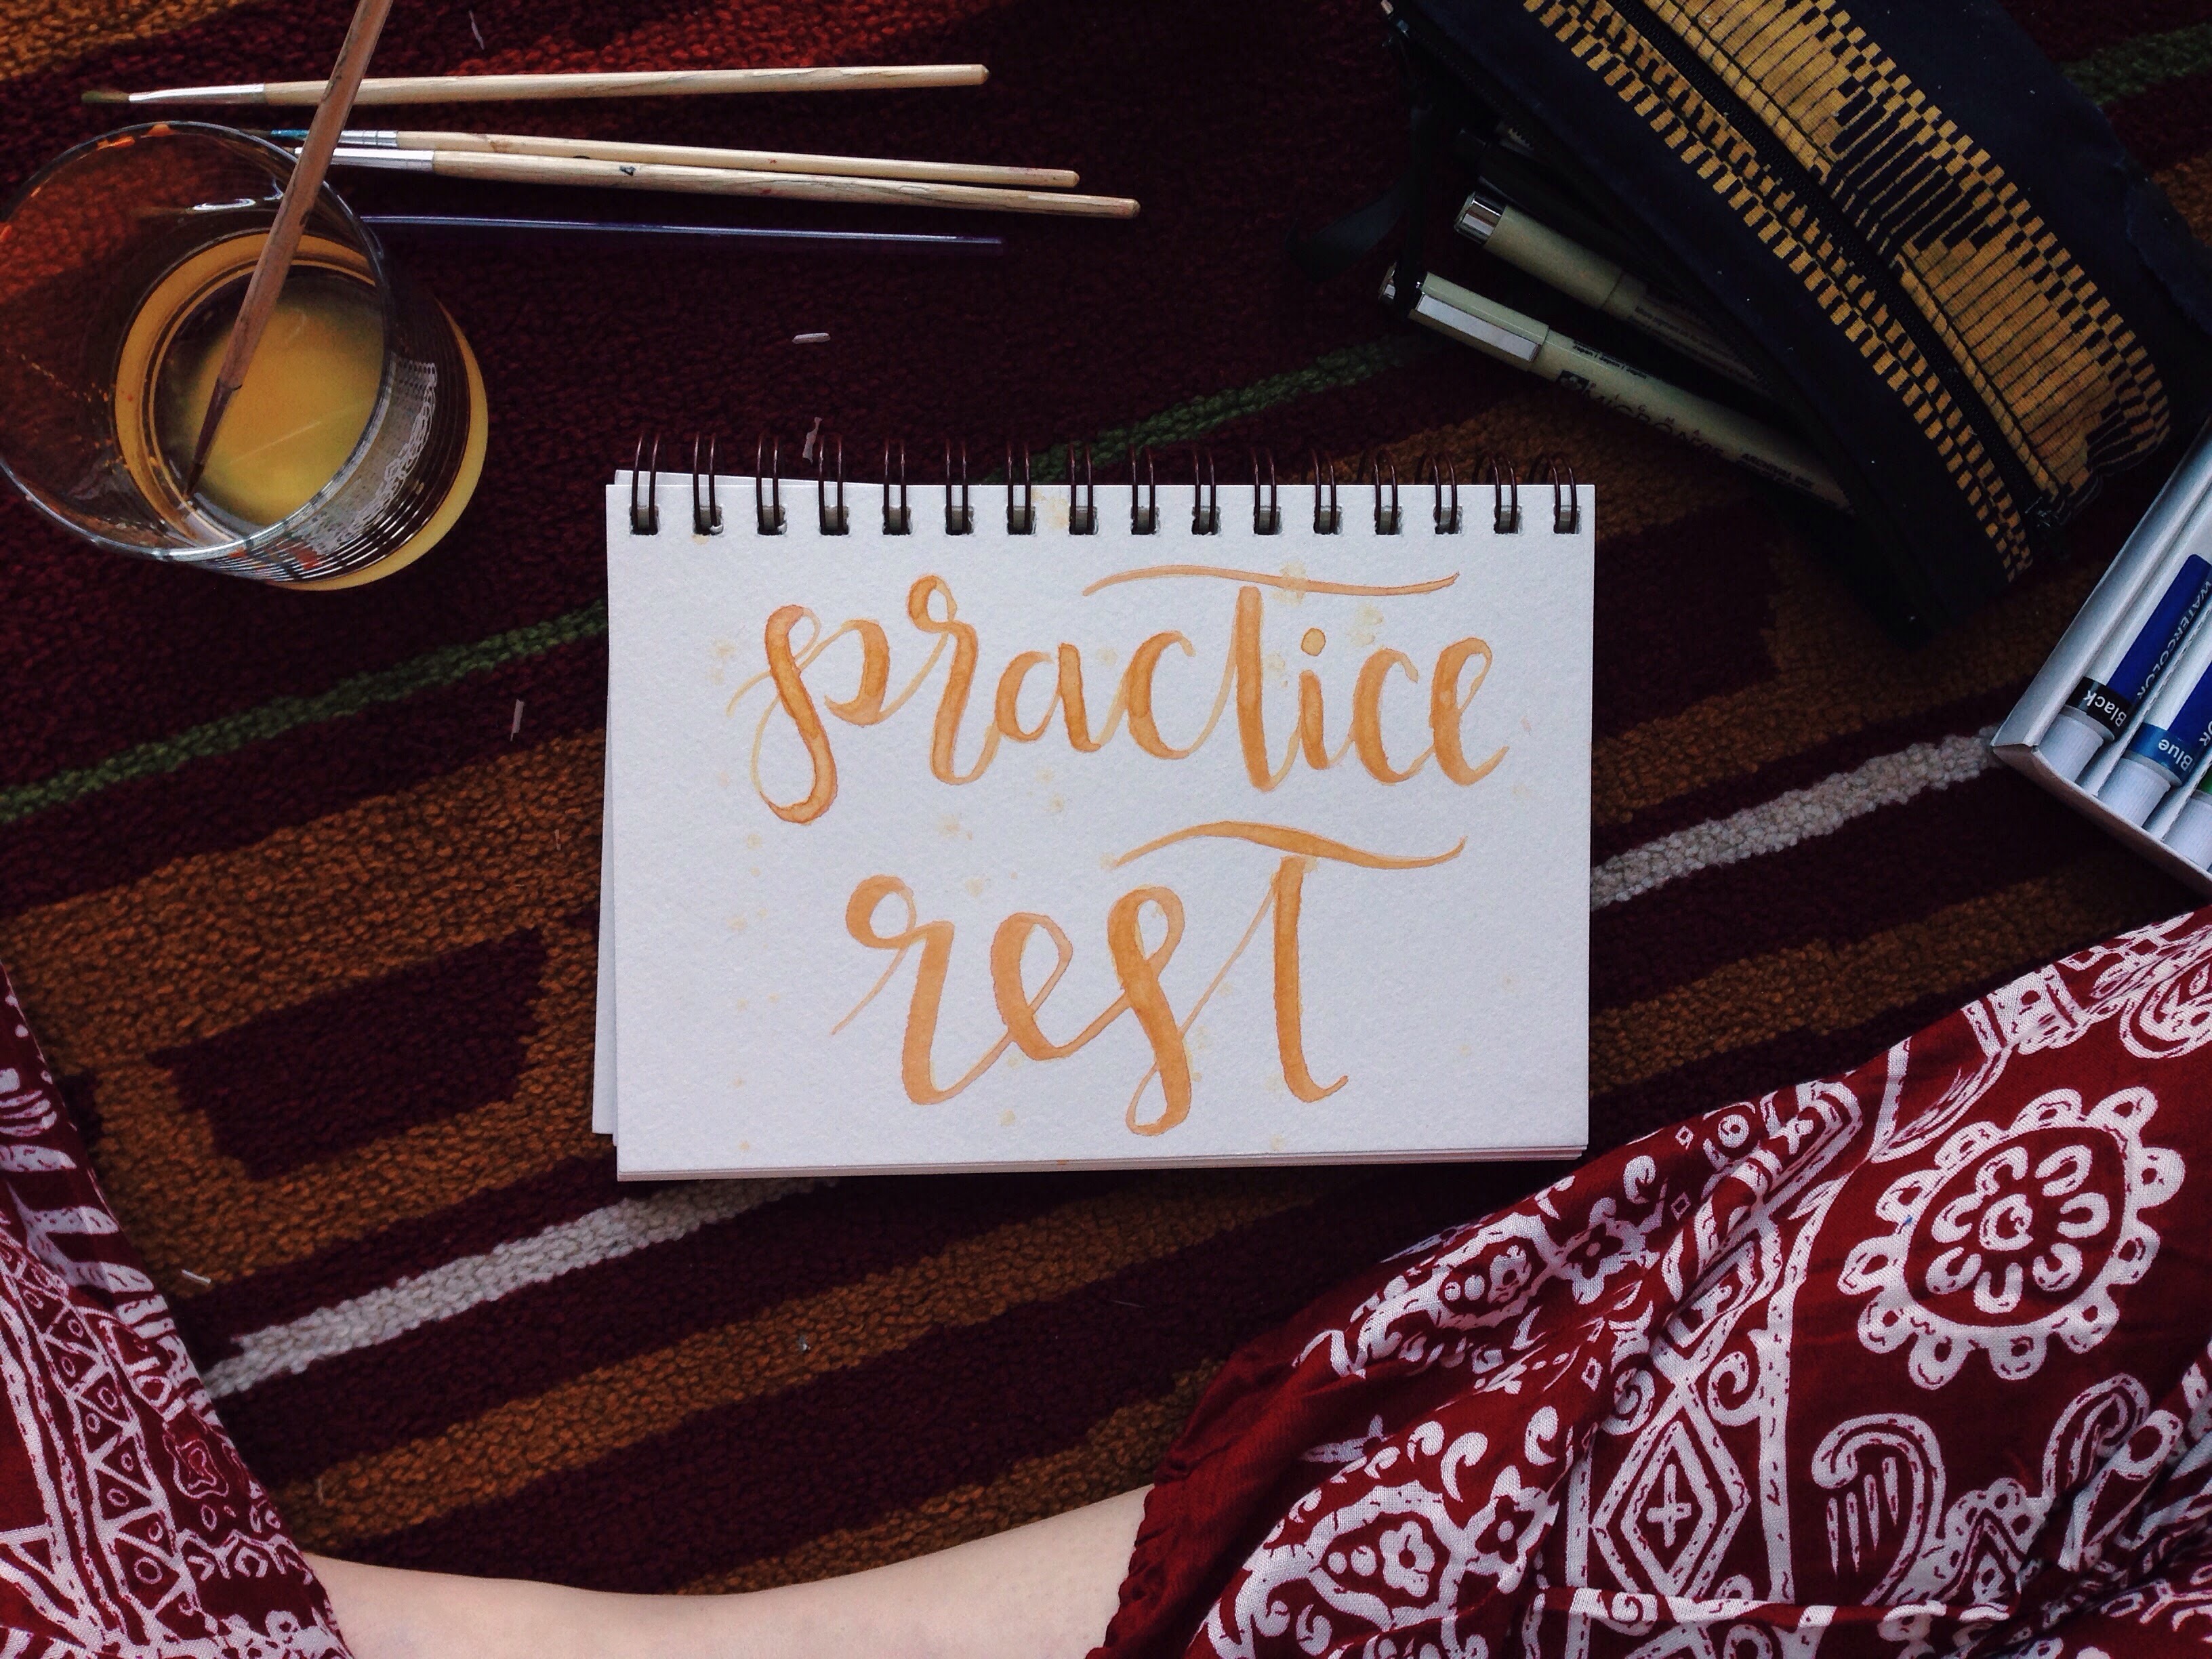 practice
rest
4
MICRON
WATERCOLOR
Black
Blue